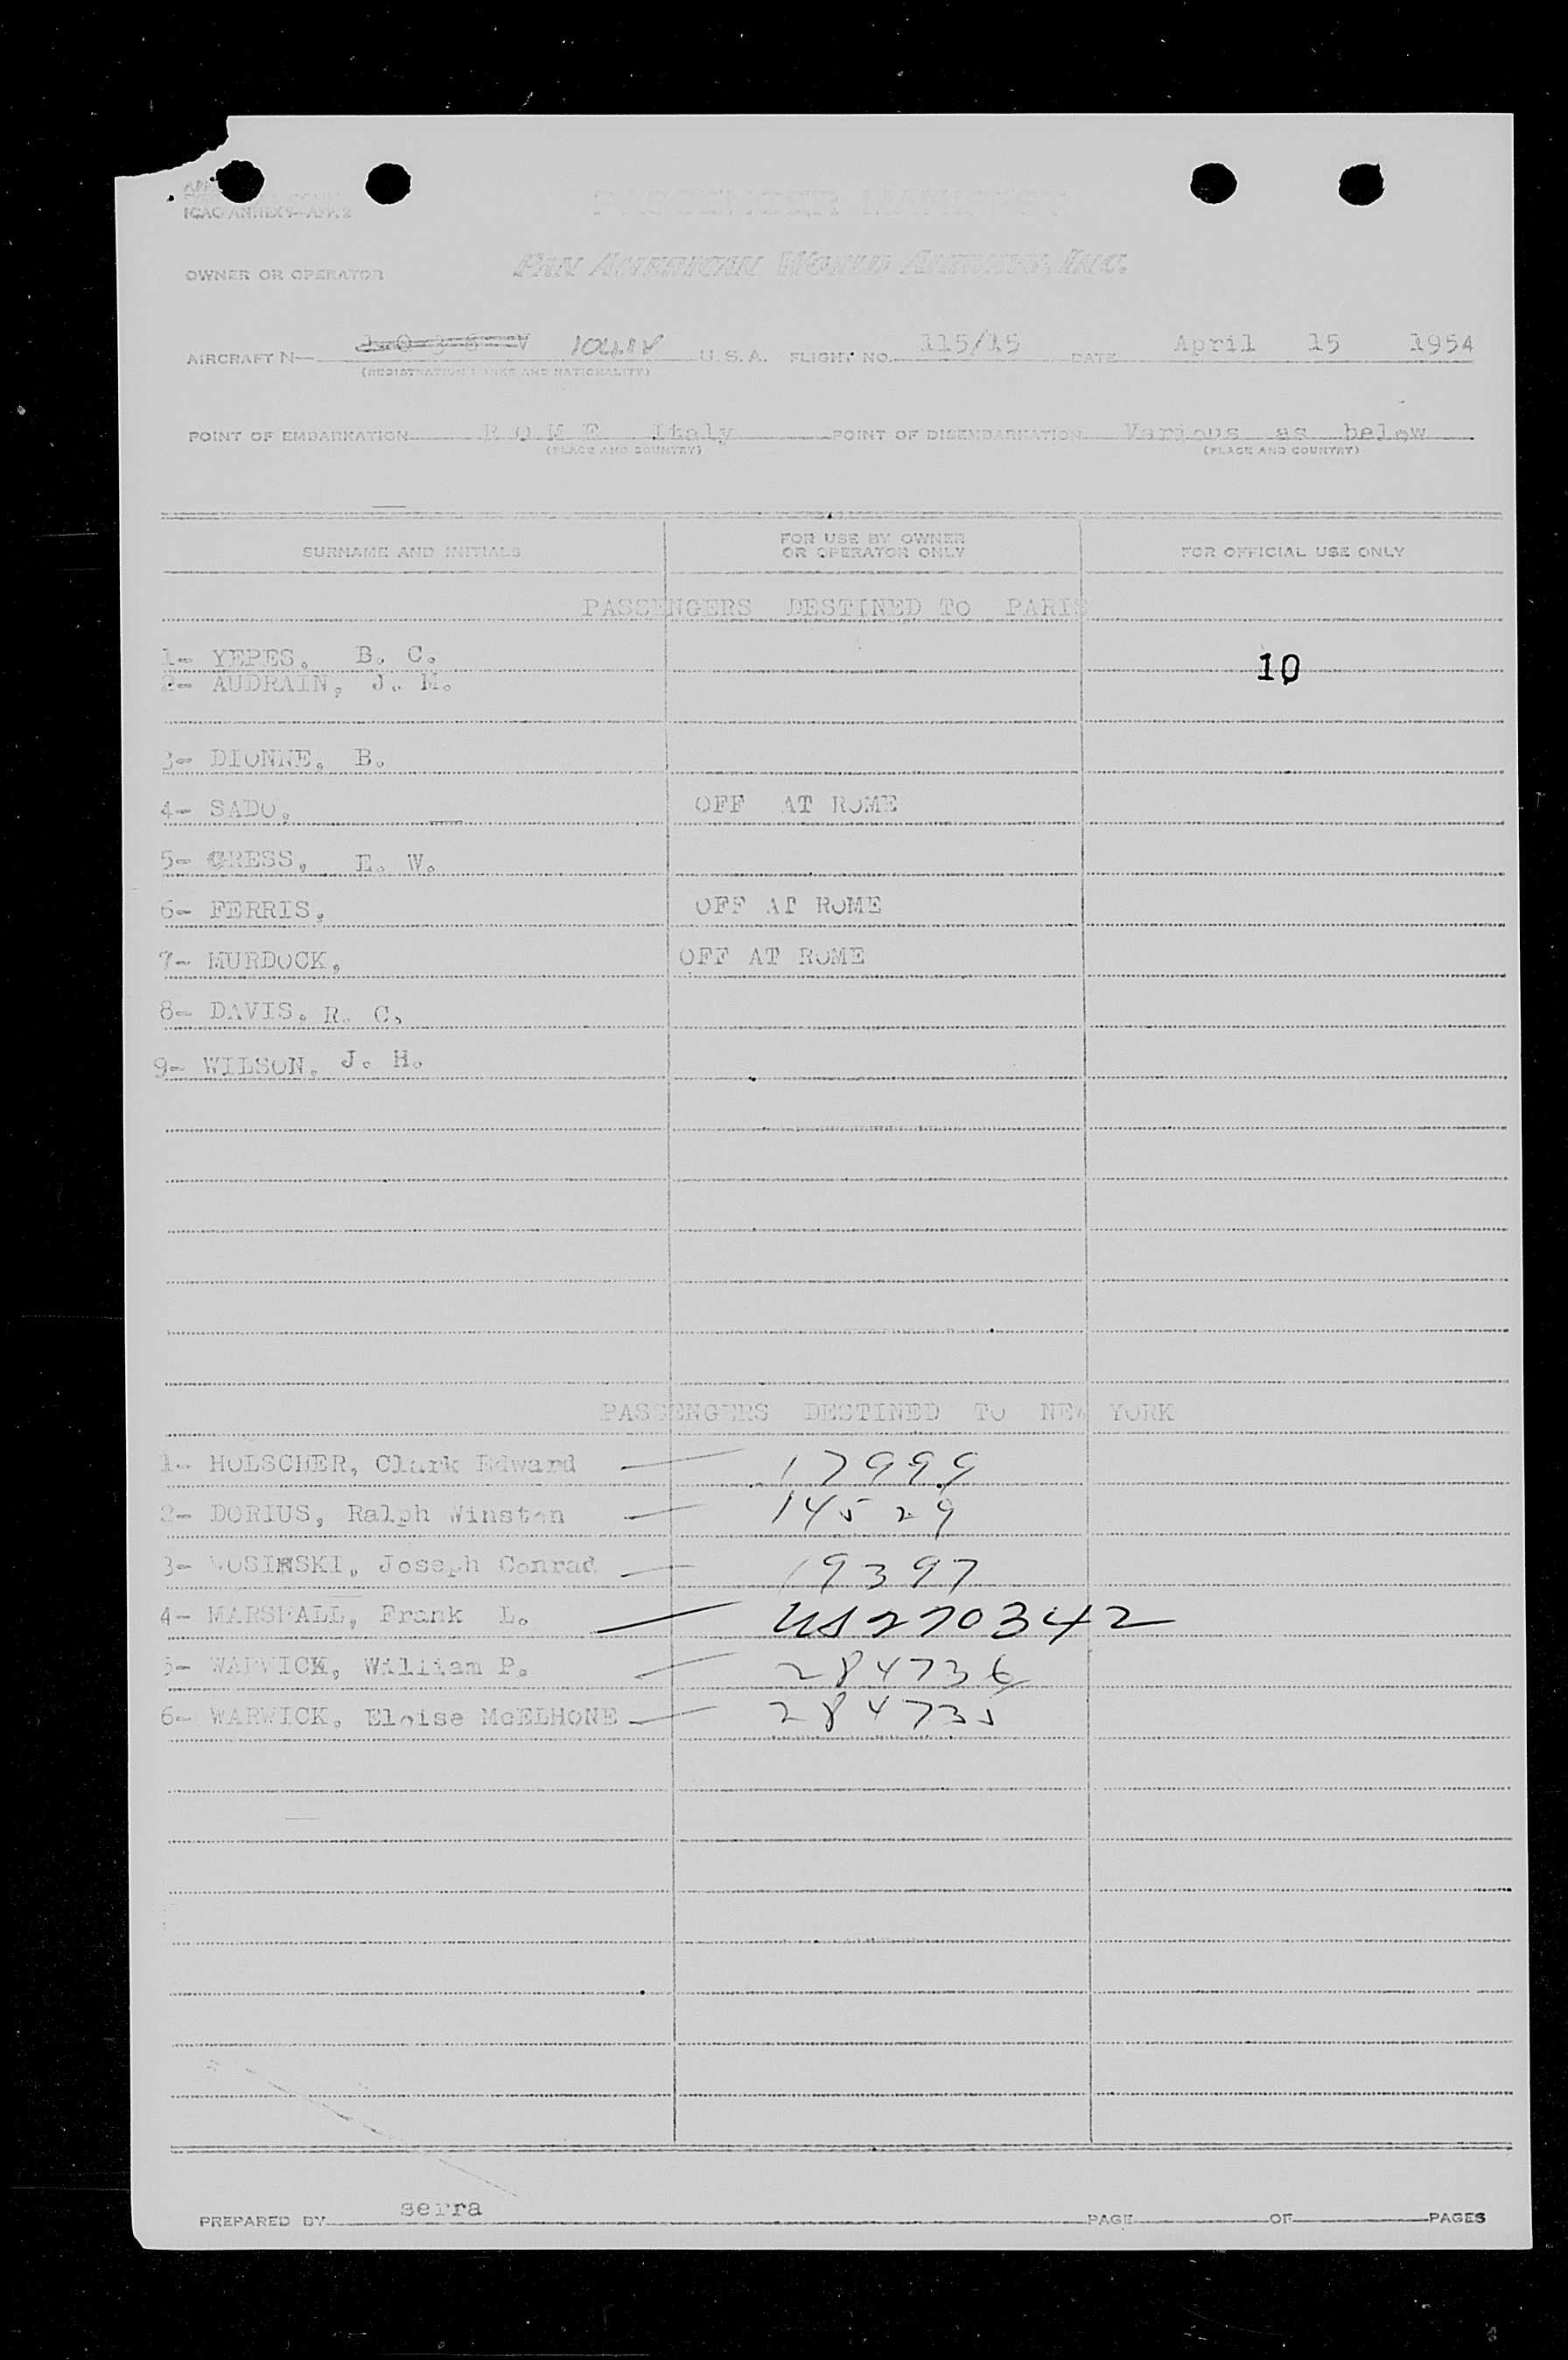 ICAO ANNEX 9—APP. 2
PASSENGER MANIFEST
OWNER OR OPERATOR PAN AMERICAN WORLD AIRWAYS, INC.
AIRCRAFT N— U. S. A. FLIGHT NO. 115/15 DATE April 15 1954
(REGISTRATION MARKS AND NATIONALITY)
POINT OF EMBARKATION R O M E Italy POINT OF DISEMBARKATION Various as below
(PLACE AND COUNTRY) (PLACE AND COUNTRY)
SURNAME AND INITIALS FOR USE BY OWNER OR OPERATOR ONLY FOR OFFICIAL USE ONLY
PASSENGERS DESTINED TO PARIS
1- YEPES, B. C. 10
2- AUDRAIN, J. M.
3- DIONNE, B.
4- SADO, OFF AT ROME
5- CRESS, E. W.
6- FERRIS, OFF AT ROME
7- MURDOCK, OFF AT ROME
8- DAVIS, R. C.
9- WILSON, J. H.
PASSENGERS DESTINED TO NEW YORK
1- HOLSCHER, Clark Edward — 17999
2- DORIUS, Ralph Winston — 14529
3- WOSINSKI, Joseph Conrad — 19397
4- MARSHALL, Frank L. — US 270342
5- WARWICK, William P. — 284736
6- WARWICK, Eloise McELHONE — 284735
PREPARED BY serra PAGE OF PAGES